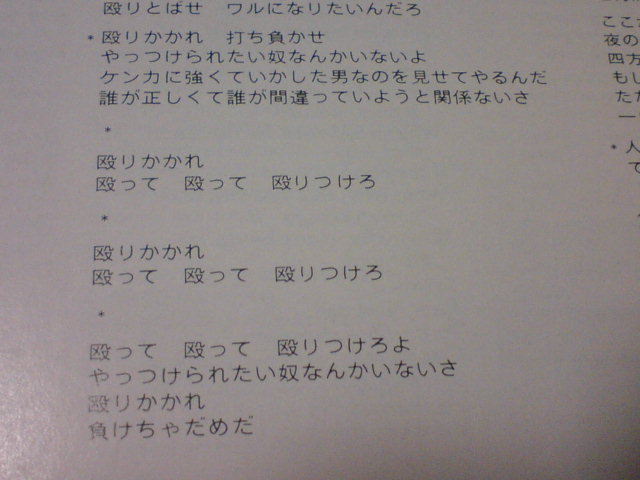 殴りとばせ　ワルになりたいんだろ
* 殴りかかれ　打ち負かせ
やっつけられたい奴なんかいないよ
ケンカに強くていかした男なのを見せてやるんだ
誰が正しくて誰が間違っていようと関係ないさ
*
殴りかかれ
殴って　殴って　殴りつけろ
*
殴りかかれ
殴って　殴って　殴りつけろ
*
殴って　殴って　殴りつけろよ
やっつけられたい奴なんかいないさ
殴りかかれ
負けちゃだめだ
ここ
夜の
四方
もし
ただ
一
* 人
て